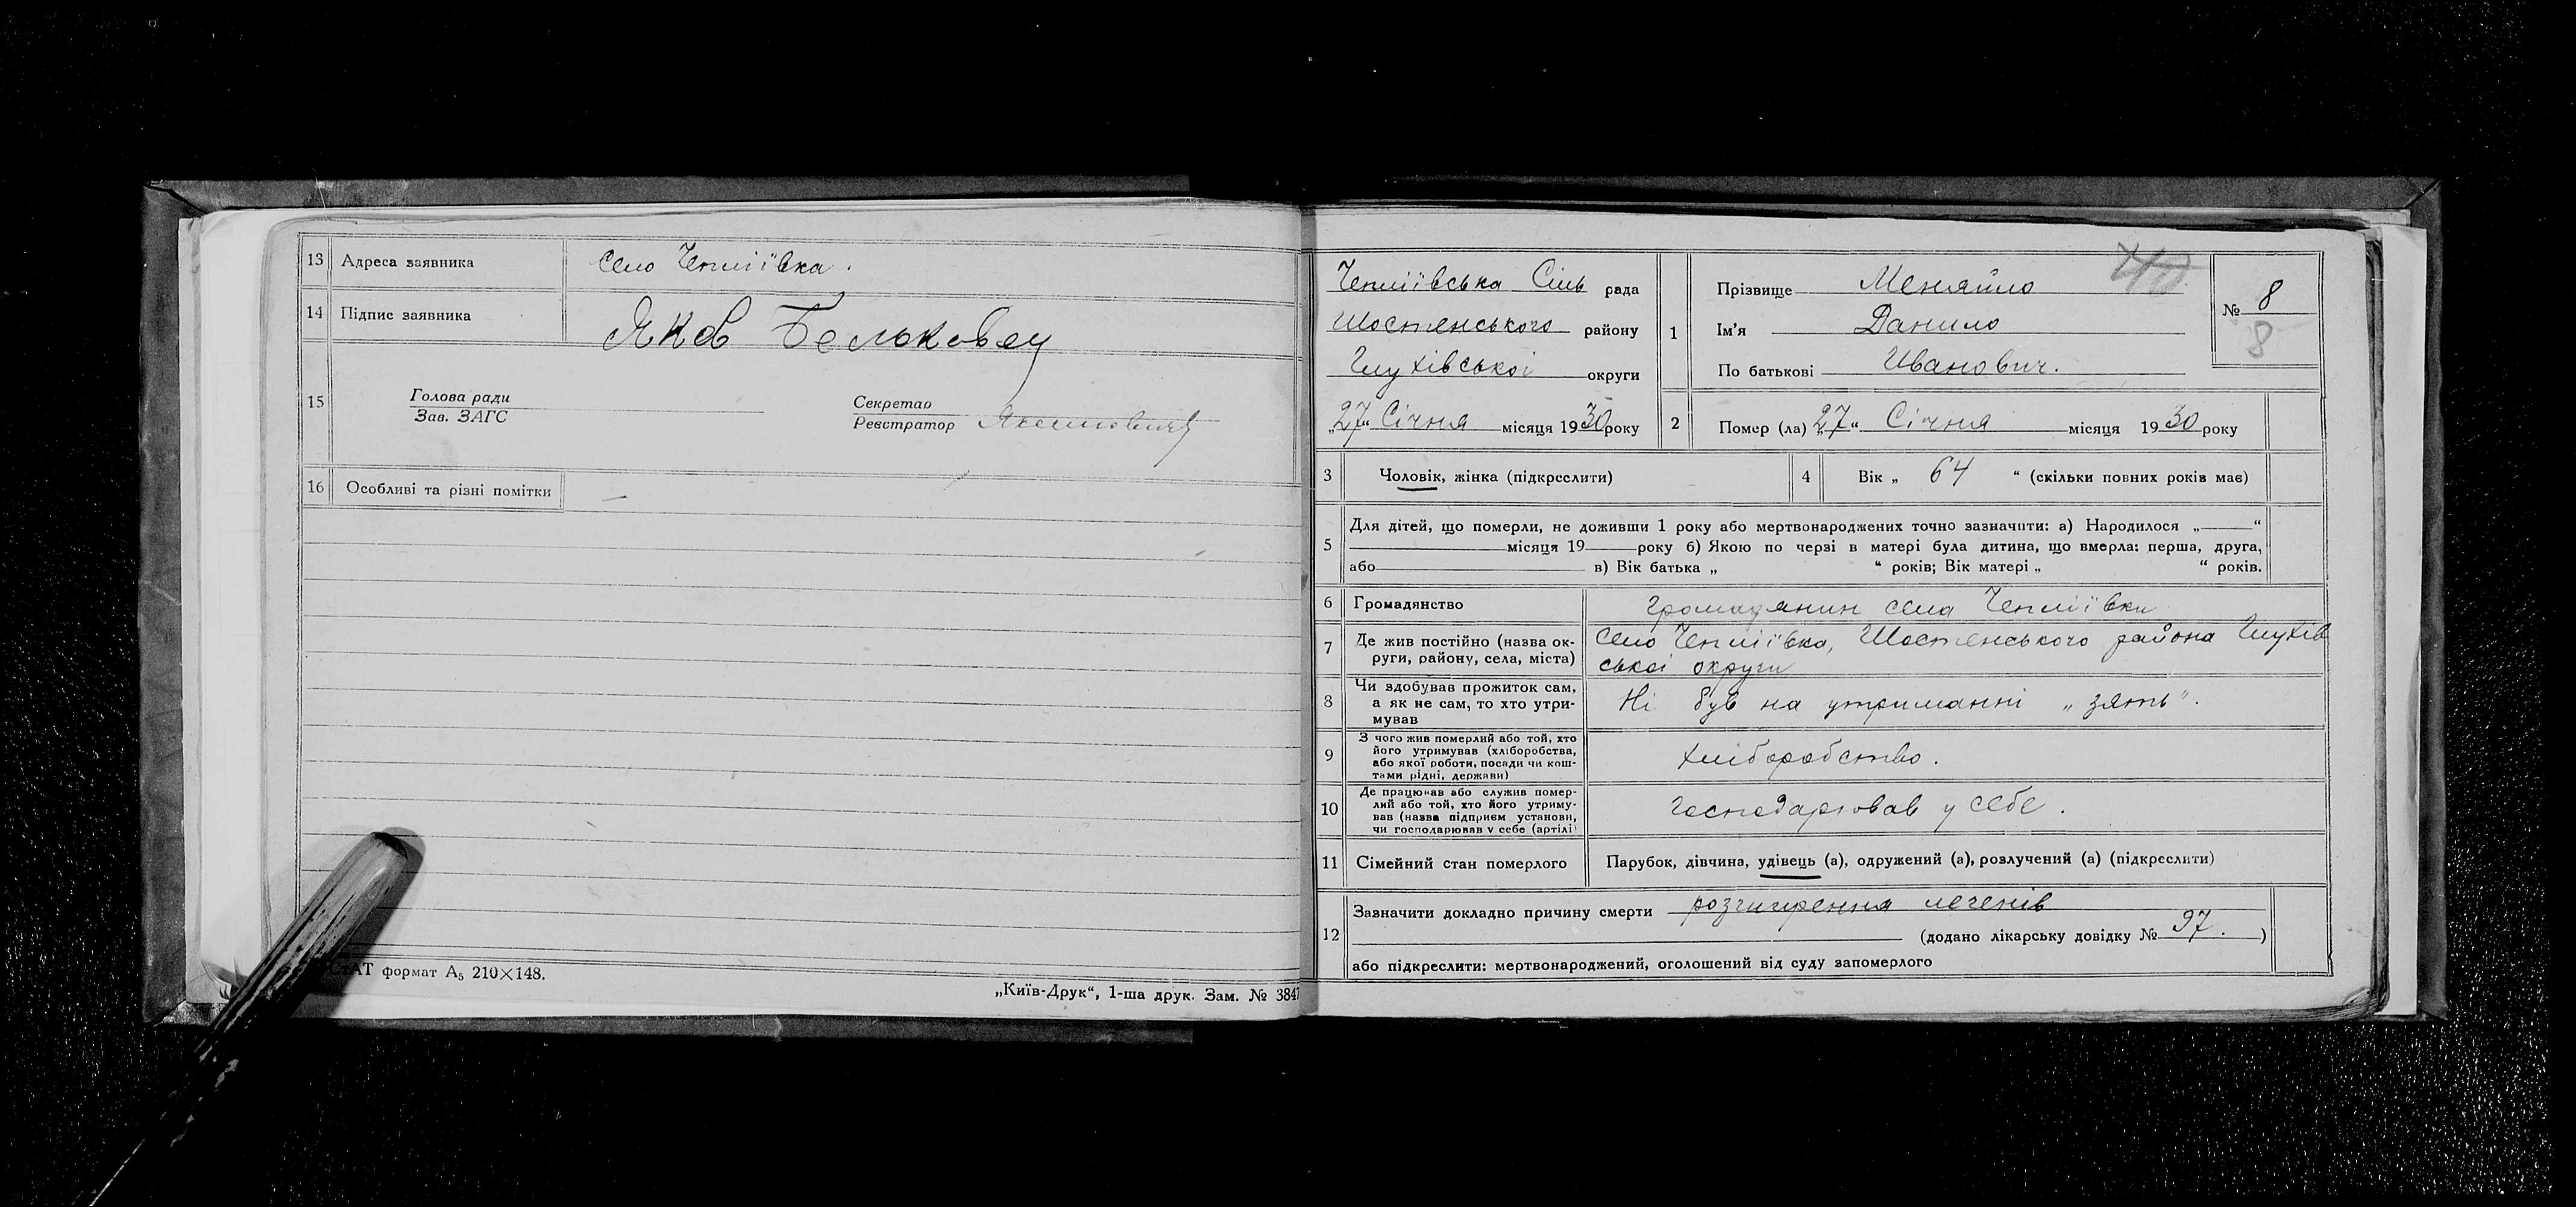 13 Адреса заявника село Чепліївка.
14 Підпис заявника Яков Бельковец
15 Голова ради
Зав. ЗАГС
Секретар
Реєстратор
16 Особливі та різні помітки —
СТАТ формат А₅ 210×148.
„Київ-Друк“, 1-ша друк. Зам. № 3847
Чепліївська Сіль рада
Шостенського району
Глухівської округи
„27“ Січня місяця 1930 року
1 Прізвище Меняйло
Ім'я Данило
По батькові Иванович.
№ 8
8
2 Помер (ла) „27“ Січня місяця 1930 року
3 Чоловік, жінка (підкреслити)
4 Вік „ 64 “ (скільки повних років має)
5 Для дітей, що померли, не доживши 1 року або мертвонароджених точно зазначити: а) Народилося „ “
місяця 19 року б) Якою по черзі в матері була дитина, що вмерла: перша, друга,
або в) Вік батька „ “ років; Вік матері „ “ років.
6 Громадянство громадянин села Чепліївки
7 Де жив постійно (назва ок-
руги, району, села, міста)
село Чепліївка, Шостенського района Глухів
ської округи
8 Чи здобував прожиток сам,
а як не сам, то хто утри-
мував
Ні був на утриманні „зять“.
9 З чого жив померлий або той, хто
його утримував (хліборобства,
або якої роботи, посади чи кош-
тами рідні, держави)
хліборобство.
10 Де працював або служив помер-
лий або той, хто його утриму-
вав (назва підприєм установи,
чи господарював у себе (артілі)
господарював у себе.
11 Сімейний стан померлого Парубок, дівчина, удівець (а), одружений (а), розлучений (а) (підкреслити)
12 Зазначити докладно причину смерти розчирення легенів
(додано лікарську довідку № 97. )
або підкреслити: мертвонароджений, оголошений від суду запомерлого